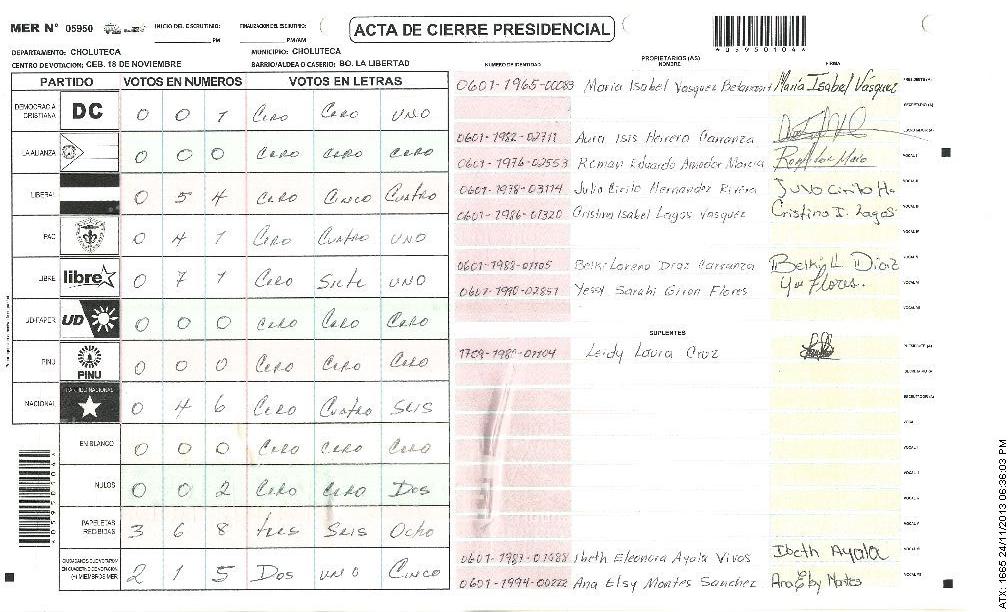 MER Nº 05950 INICIO DEL ESCRUTINIO: FINALIZACION DEL ESCRUTINIO: ACTA DE CIERRE PRESIDENCIAL
PM PM/AM
DEPARTAMENTO: CHOLUTECA MUNICIPIO: CHOLUTECA
CENTRO DE VOTACION: CEB. 18 DE NOVIEMBRE BARRIO/ALDEA O CASERIO: BO. LA LIBERTAD
PARTIDO VOTOS EN NUMEROS VOTOS EN LETRAS
DEMOCRACIA CRISTIANA DC 0 0 1 Cero Cero UNO
LA ALIANZA 0 0 0 Cero Cero Cero
LIBERAL 0 5 4 Cero Cinco Cuatro
PAC 0 4 1 Cero Cuatro UNO
LIBRE libre 0 7 1 Cero Siete UNO
UD FAPER UD 0 0 0 Cero Cero Cero
PINU PINU 0 0 0 Cero Cero Cero
NACIONAL PARTIDO NACIONAL 0 4 6 Cero Cuatro Seis
EN BLANCO 0 0 0 Cero Cero Cero
NULOS 0 0 2 Cero Cero Dos
PAPELETAS RECIBIDAS 3 6 8 tres Seis Ocho
CIUDADANOS QUE VOTARON EN CUADERNO DE VOTACION (+) MIEMBROS MER 2 1 5 Dos UNO Cinco
NUMERO DE IDENTIDAD PROPIETARIOS (AS) NOMBRE FIRMA
0601-1965-00083 Maria Isabel Vasquez María Isabel Vásquez
0601-1982-02711 Aura Isis Herrera Carranza
0601-1976-02553 Roman Eduardo Amador
0601-1978-03114 Julio Cirilo Hernandez Rivera Julio Cirilo H.
0601-1986-01320 Cristina Isabel Lagos Vasquez Cristina I. Lagos
0601-1988-01105 Carranza Belki L Diaz
0601-1990-02851 Yessy Sarahi Giron Flores Flores.
SUPLENTES
1709-1989-01104 Leidy Laura Cruz
Ibeth Eleonora Ayala Vivas Ibeth Ayala
0601-1994-00222 Ana Elsy Montes Sanchez
4059501044
ATX: 1665 24/11/2013 06:36:03 PM